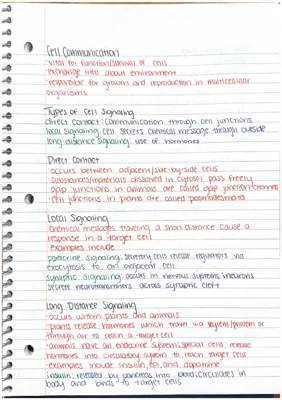 Cell Communication
· vital for function/survival of cells
· exchange info about environment
· responsible for growth and reproduction in multicellular
organisms
Types of Cell Signaling
direct contact: communication through cell junctions
local signaling: cell secrets chemical message through outside
long-distance signaling: use of hormones
Direct Contact
· occurs between adjacent/side-by-side cells
· substances/materials dissolved in cytosol pass freely
· gap junctions in animals are called gap junction channels
· cell junctions in plants are called plasmodesmata
Local Signaling
· chemical messages traveling a short distance cause a
response in a target cell
· examples include
paracrine signaling: secretory cells release regulators via
exocytosis to an adjacent cell
synaptic signaling: occurs in nervous systems; neurons
secrete neurotransmitters across synaptic cleft
Long Distance Signaling
· occurs within plants and animals
· plants release hormones which travel via xylem/phloem or
through air to reach a target cell
· animals have an endocrine system; special cells release
hormones into circulatory system to reach target cells
· examples include insulin, and dopamine
insulin: released by pancreas into blood; circulates in
body and binds to target cells